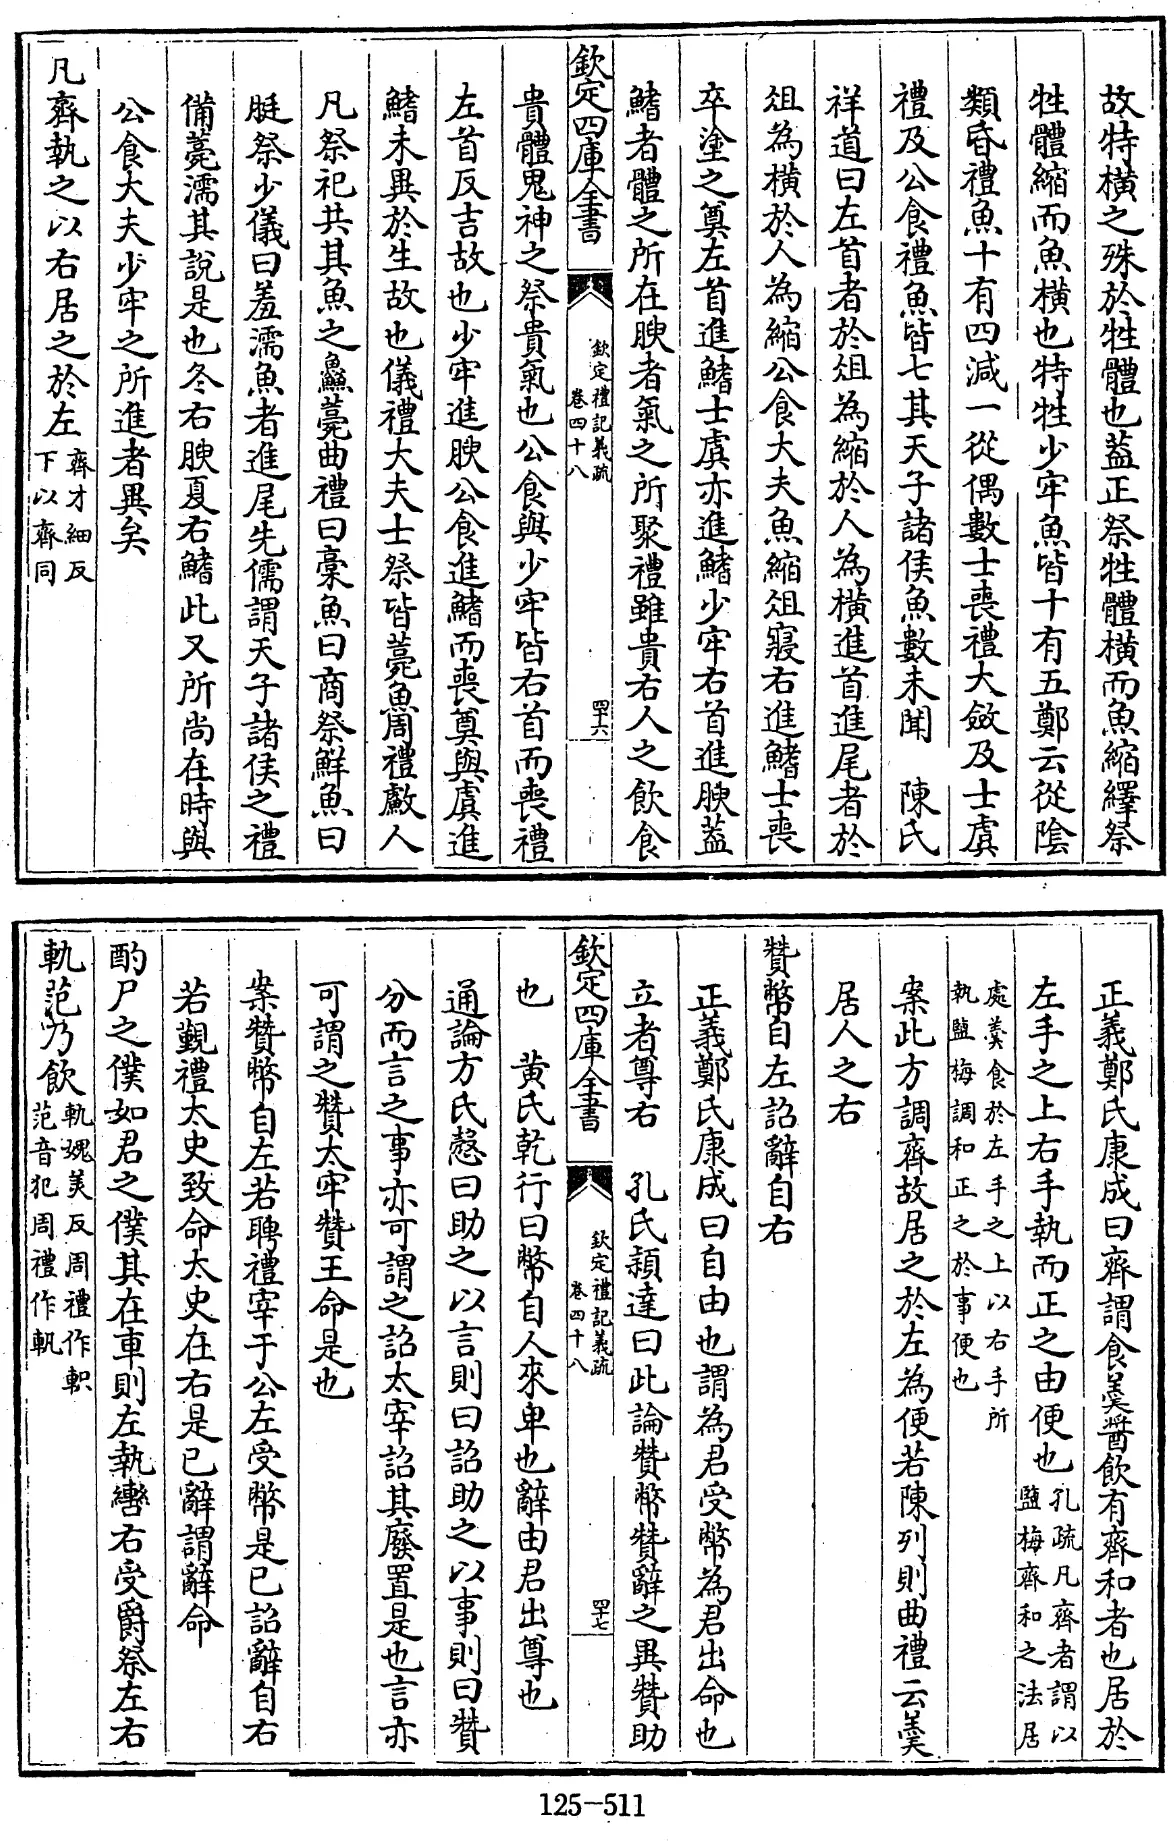 故特橫之殊於牲體也葢正祭牲體橫而魚縮繹祭
牲體縮而魚橫也特牲少牢魚皆十有五鄭云從陰
類昏禮魚十有四減一從偶數士喪禮大斂及士虞
禮及公食禮魚皆七其天子諸侯魚數未聞　陳氏
祥道曰左首者於俎為縮於人為橫進首進尾者於
俎為橫於人為縮公食大夫魚縮俎寢右進鰭士喪
卒塗之奠左首進鰭士虞亦進鰭少牢右首進腴葢
鰭者體之所在腴者氣之所聚禮雖貴右人之飲食
欽定四庫全書
欽定禮記義疏
卷四十八
四十六
貴體鬼神之祭貴氣也公食與少牢皆右首而喪禮
左首反吉故也少牢進腴公食進鰭而喪奠與虞進
鰭未異於生故也儀禮大夫士祭皆薧魚周禮䱷人
凡祭祀共其魚之鱻薧曲禮曰槀魚曰商祭鮮魚曰
脡祭少儀曰羞濡魚者進尾先儒謂天子諸侯之禮
備薧濡其說是也冬右腴夏右鰭此又所尚在時與
公食大夫少牢之所進者異矣
凡齊執之以右居之於左齊才細反
下以齊同
正義鄭氏康成曰齊謂食羹醬飲有齊和者也居於
左手之上右手執而正之由便也孔疏凡齊者謂以
鹽梅齊和之法居
處羹食於左手之上以右手所
執鹽梅調和正之於事便也
案此方調齊故居之於左為便若陳列則曲禮云羹
居人之右
贊幣自左詔辭自右
正義鄭氏康成曰自由也謂為君受幣為君出命也
立者尊右　孔氏穎達曰此論贊幣贊辭之異贊助
欽定四庫全書
欽定禮記義疏
卷四十八
四十七
也　黃氏乾行曰幣自人來卑也辭由君出尊也
通論方氏慤曰助之以言則曰詔助之以事則曰贊
分而言之事亦可謂之詔太宰詔其廢置是也言亦
可謂之贊太宰贊王命是也
案贊幣自左若聘禮宰于公左受幣是已詔辭自右
若覲禮太史致命太史在右是已辭謂辭命
酌尸之僕如君之僕其在車則左執轡右受爵祭左右
軌范乃飲軌媿美反周禮作軹
范音犯周禮作軓
125-511